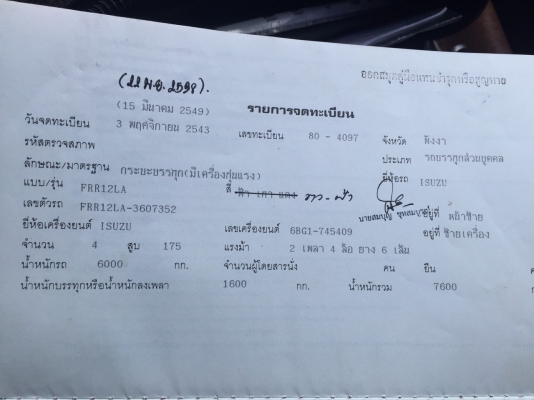 ออกสมุดคู่มือแทนชำรุดหรือสูญหาย
(22 พ.ย. 2598).
(15 มีนาคม 2549) รายการจดทะเบียน
วันจดทะเบียน 3 พฤศจิกายน 2543 เลขทะเบียน 80 - 4097 จังหวัด พังงา
รหัสตรวจสภาพ ประเภท รถบรรทุกส่วนบุคคล
ลักษณะ/มาตรฐาน กระบะบรรทุก(มีเครื่องทุ่นแรง) ยี่ห้อรถ ISUZU
แบบ/รุ่น FRR12LA สี ฟ้า เทา แดง ขาว-ฟ้า
เลขตัวรถ FRR12LA-3607352 อยู่ที่ หน้าซ้าย
ยี่ห้อเครื่องยนต์ ISUZU เลขเครื่องยนต์ 6BG1-745409 อยู่ที่ ซ้ายเครื่อง
จำนวน 4 สูบ 175 แรงม้า 2 เพลา 4 ล้อ ยาง 6 เส้น
น้ำหนักรถ 6000 กก. จำนวนผู้โดยสารนั่ง คน ยืน
น้ำหนักบรรทุกหรือน้ำหนักลงเพลา 1600 กก. น้ำหนักรวม 7600